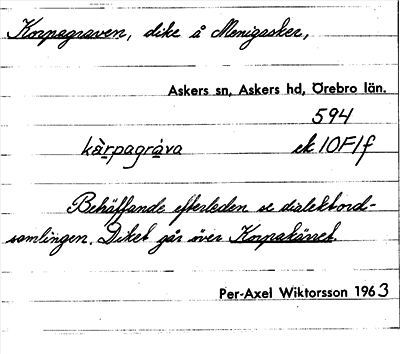 Korpagraven, dike å Menigasker,
Askers sn, Askers hd, Örebro län.
594
kàrpagráva ek 10F1f
Behäffande efterleden se dialektord-
samlingen. Diket går över Korpakärret.
Per-Axel Wiktorsson 1963